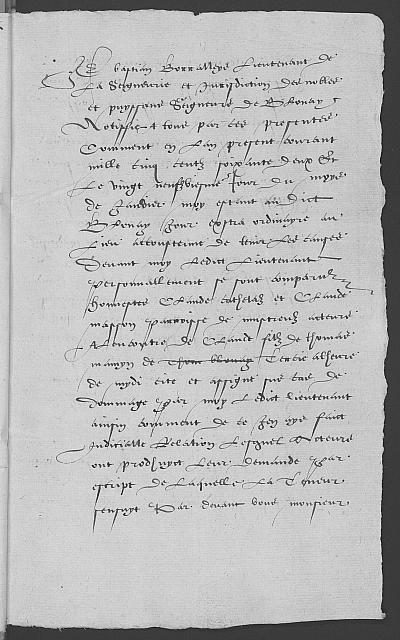 Je bastian Borralleys Lieutenant de
La Seigneurie et Jurisdiction des nobles
et puyssans Seigneurs de Blonay
Notiffie a tous par ces presentes
Comment en Lan present courant
mille cinq centz soixante deux Et
Le vingt neuffviesme Jour du moys
de Janvier moy estant au dict
Blonay Jour extra ordinayre au
Lieu accoustume de tenir Les causes
Devant moy Ledict Lieutenant
personnallement se sont comparuz
honnestes Claude et Claude
masson parroisse de acteurs
A lencontre de Claude filz de thomas
mamyn de Tierce a lheure
de mydi cite et assigne sur de
dommage Par moy Ledict lieutenant
ainsin comment de ce Jen ays faict
Judicialle Relation Lesquelz Acteurs
ont produyct Leur demande Par
escript de Laquelle La Teneur
sensuyt Par devant vous monsieur